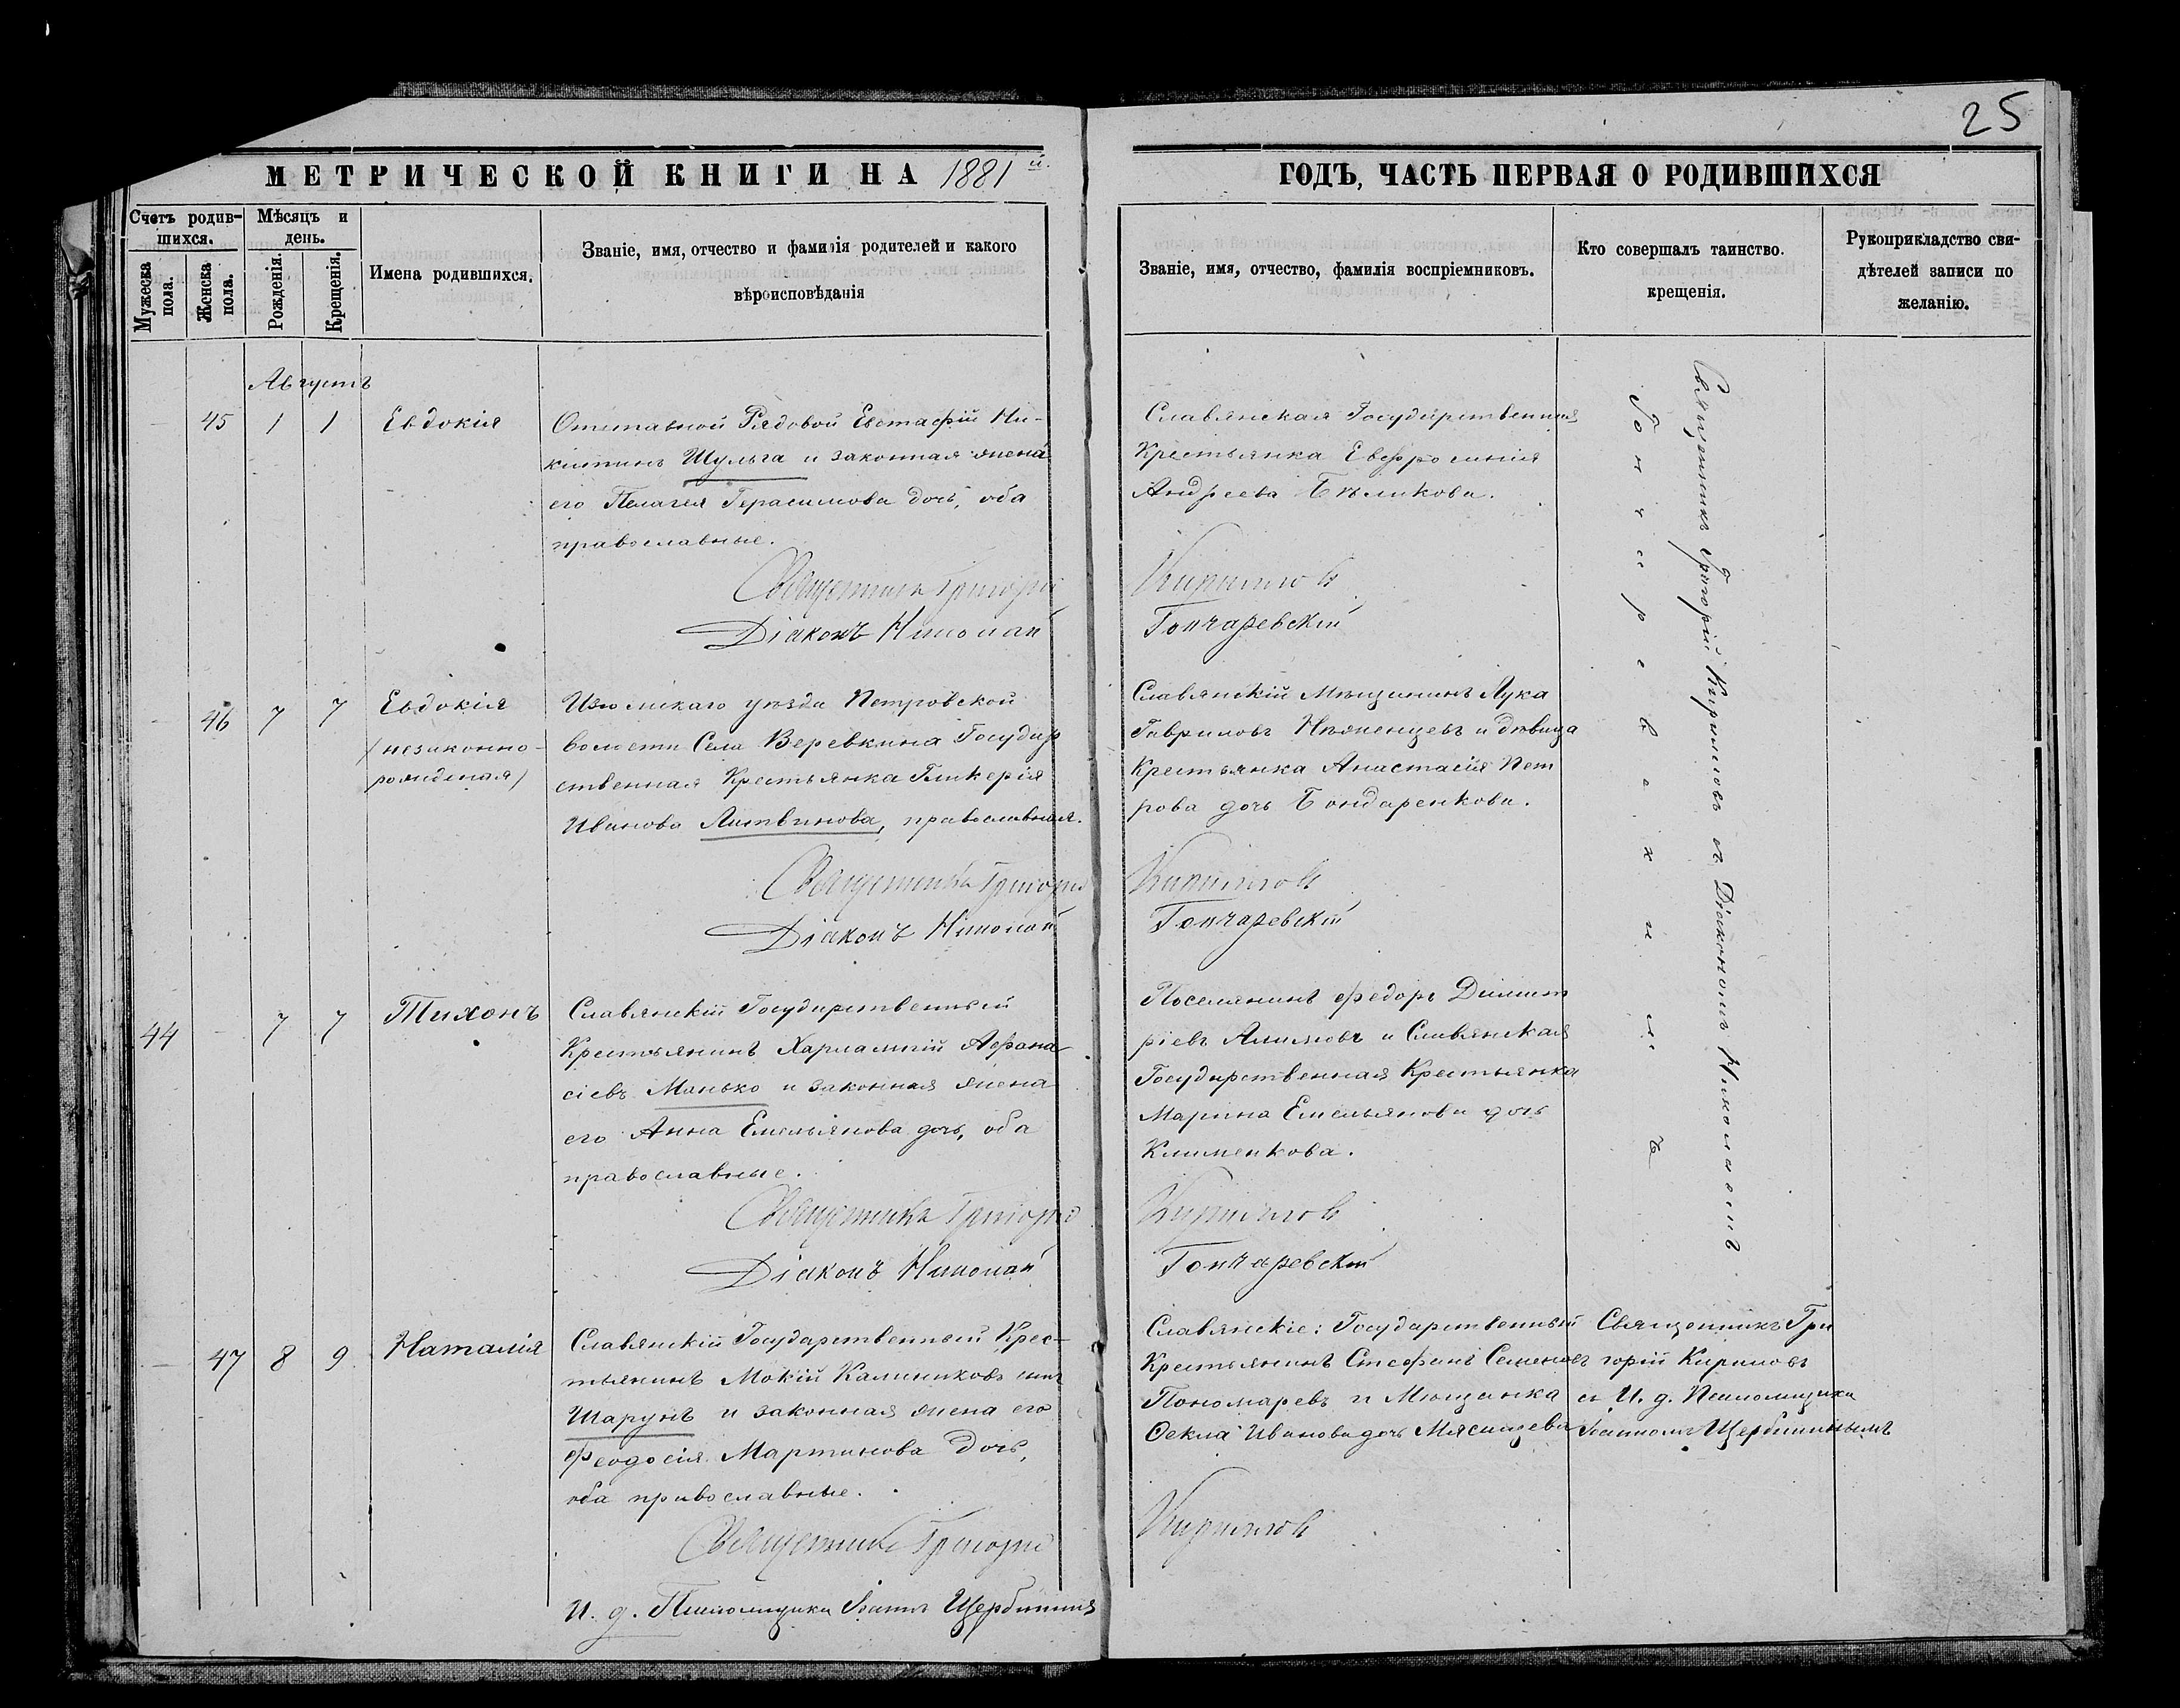 25
МЕТРИЧЕСКОЙ КНИГИ НА 1881й.
ГОДЪ, ЧАСТЬ ПЕРВАЯ О РОДИВШИХСЯ
Счетъ родив-
шихся.
Мужеска пола.
Женска пола.
Мѣсяцъ и
день.
Рожденія.
Крещенія.
Имена родившихся.
Званіе, имя, отчество и фамилія родителей и какого
вѣроисповѣданія
Званіе, имя, отчество, фамилія воспріемниковъ.
Кто совершалъ таинство.
крещенія.
Рукоприкладство сви-
дѣтелей записи по
желанію.
Августъ
45 1 1 Евдокія
Отставной Рядовой Евстафій Ни-
китинъ Шульга и законная жена
его Пелагея Герасимова дочь, оба
православные.
Священникъ Григорій
Діаконъ Николай
Славянская Государственная
Крестьянка Евфросинія
Андреева Бѣликова.
Кириловъ
Гончаревскій
Священникъ Григорій Кириловъ съ Діакономъ Николаемъ
Гончаревскимъ
46 7 7 Евдокія
/незаконно-
рожденная/
Изюмскаго уѣзда Петровской
волости Села Веревкина Государ
ственная Крестьянка Гликерія
Иванова Литвинова, православная.
Священникъ Григорій
Діаконъ Николай
Славянскій Мѣщанинъ Лука
Гавриловъ Нѣженцевъ и дѣвица
Крестьянка Анастасія Пет
рова дочь Бондаренкова.
Кириловъ
Гончаревскій
44 7 7 Тихонъ
Славянскій Государственный
Крестьянинъ Харлампій Афана-
сіевъ Манько и законная жена
его Анна Емельянова дочь, оба
православные.
Священникъ Григорій
Діаконъ Николай
Поселянинъ Федоръ Димит
ріевъ Алимовъ и Славянская
Государственная Крестьянка
Марина Емельянова дочь
Клименкова.
Кириловъ
Гончаревскій
47 8 9 Наталія
Славянскій Государственный Крес-
тьянинъ Мокій Калиниковъ сынъ
Шарунъ и законная жена его
Феодосія Мартинова дочь,
оба православные.
Священникъ Григорій
И. д. Псаломщика Іоаннъ Щербининъ
Славянскіе: Государственный
Крестьянинъ Стефанъ Семеновъ
Пономаревъ и Мѣщанка
Ѳекла Иванова дочь Мясищева
Кириловъ
Священникъ Гри
горій Кириловъ
съ И. д. Псаломщика
Іоанномъ Щербининымъ